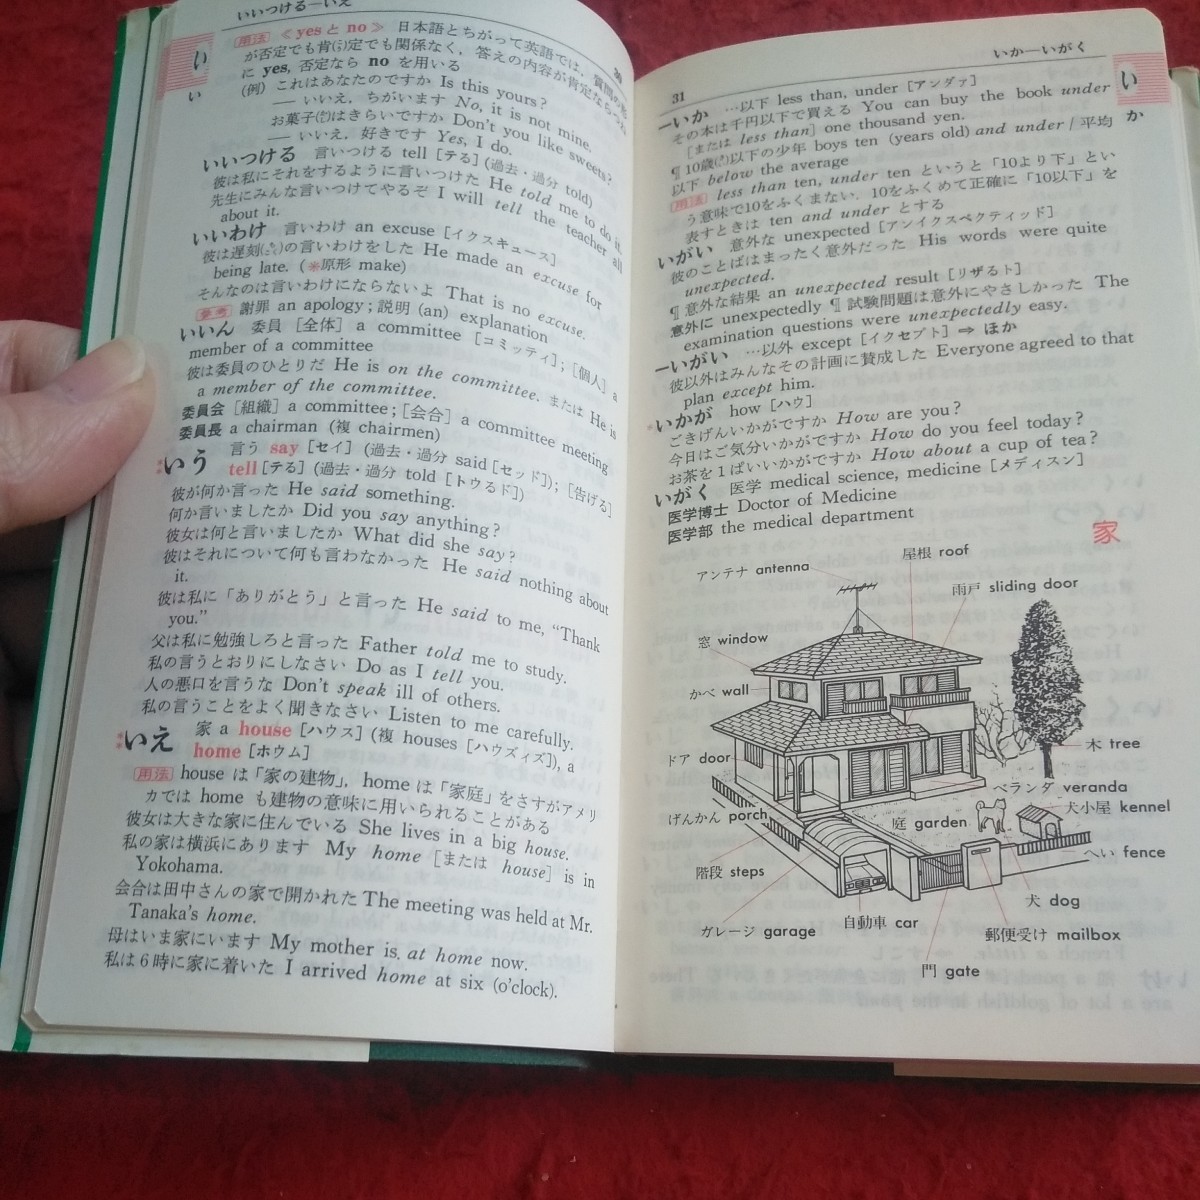 いいつける—いえ
30
い
い
用法 《yes と no》 日本語とちがって英語では，質問の形
が否定でも肯(こう)定でも関係なく，答えの内容が肯定ならつねに
yes, 否定なら no を用いる
(例) これはあなたのですか Is this yours?
— いいえ，ちがいます No, it is not mine.
お菓子(かし)はきらいですか Don't you like sweets?
— いいえ，好きです Yes, I do.
いいつける 言いつける tell [テる] (過去・過分 told)
彼は私にそれをするように言いつけた He told me to do it.
先生にみんな言いつけてやるぞ I will tell the teacher all
about it.
いいわけ 言いわけ an excuse [イクスキュース]
彼は遅刻(ちこく)の言いわけをした He made an excuse for
being late. (※原形 make)
そんなのは言いわけにならないよ That is no excuse.
参考 謝罪 an apology; 説明 (an) explanation
いいん 委員 [全体] a committee [コミッティ]; [個人] a
member of a committee
彼は委員のひとりだ He is on the committee. または He is
a member of the committee.
委員会 [組織] a committee; [会合] a committee meeting
委員長 a chairman (複 chairmen)
**いう 言う say [セイ] (過去・過分 said [セッド]); [告げる]
tell [テる] (過去・過分 told [トウるド])
彼が何か言った He said something.
何か言いましたか Did you say anything?
彼女は何と言いましたか What did she say?
彼はそれについて何も言わなかった He said nothing about
it.
彼は私に「ありがとう」と言った He said to me, “Thank
you.”
父は私に勉強しろと言った Father told me to study.
私の言うとおりにしなさい Do as I tell you.
人の悪口を言うな Don't speak ill of others.
私の言うことをよく聞きなさい Listen to me carefully.
**いえ 家 a house [ハウス] (複 houses [ハウズィズ]), a
home [ホウム]
用法 house は「家の建物」, home は「家庭」をさすがアメリ
カでは home も建物の意味に用いられることがある
彼女は大きな家に住んでいる She lives in a big house.
私の家は横浜にあります My home [または house] is in
Yokohama.
会合は田中さんの家で開かれた The meeting was held at Mr.
Tanaka's home.
母はいま家にいます My mother is at home now.
私は6時に家に着いた I arrived home at six (o'clock).
31
いか—いがく
い
か
—いか …以下 less than, under [アンダァ]
その本は千円以下で買える You can buy the book under
[または less than] one thousand yen.
¶ 10歳(さい)以下の少年 boys ten (years old) and under / 平均
以下 below the average
用法 less than ten, under ten というと「10より下」とい
う意味で10をふくまない．10をふくめて正確に「10以下」を
表すときは ten and under とする
いがい 意外な unexpected [アンイクスペクティッド]
彼のことばはまったく意外だった His words were quite
unexpected.
¶ 意外な結果 an unexpected result [リザるト]
意外に unexpectedly ¶ 試験問題は意外にやさしかった The
examination questions were unexpectedly easy.
—いがい …以外 except [イクセプト] ⇒ ほか
彼以外はみんなその計画に賛成した Everyone agreed to that
plan except him.
*いかが how [ハウ]
ごきげんいかがですか How are you?
今日はご気分いかがですか How do you feel today?
お茶を1ぱいいかがですか How about a cup of tea?
いがく 医学 medical science, medicine [メディスン]
医学博士 Doctor of Medicine
医学部 the medical department
家
アンテナ antenna
屋根 roof
雨戸 sliding door
窓 window
かべ wall
ドア door
木 tree
ベランダ veranda
げんかん porch
庭 garden
犬小屋 kennel
へい fence
階段 steps
犬 dog
ガレージ garage
自動車 car
郵便受け mailbox
門 gate